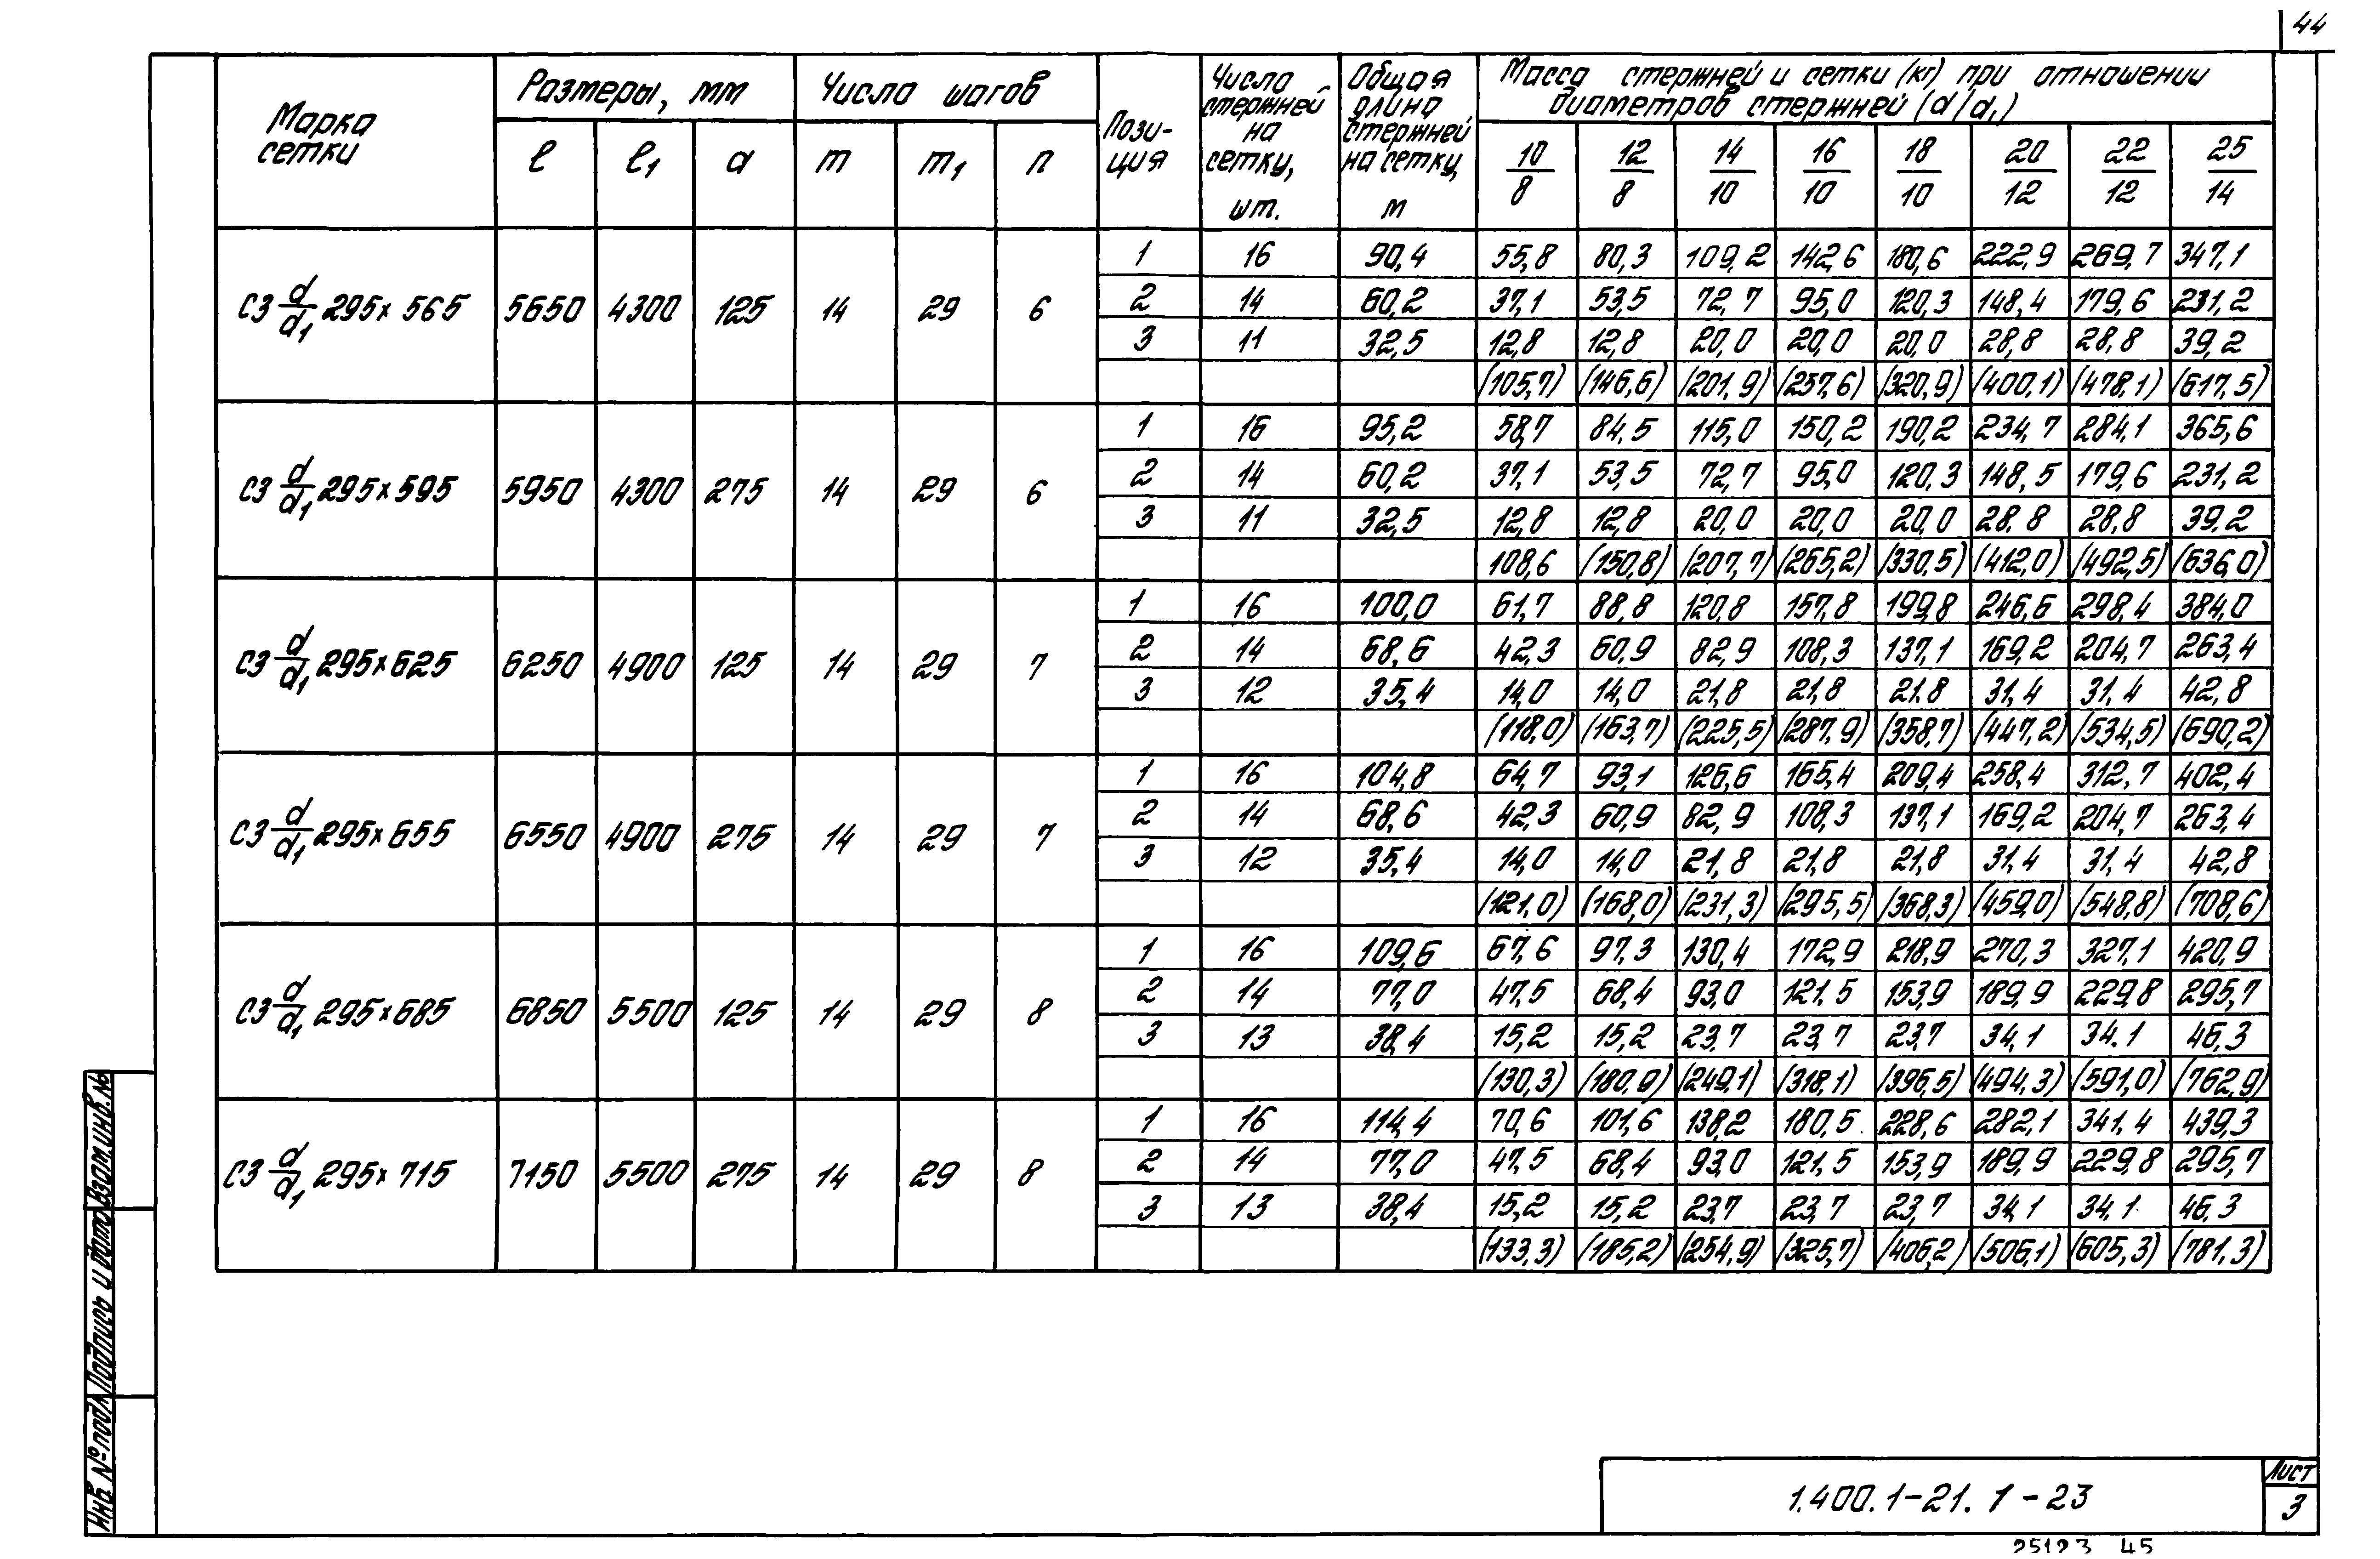 44
Марка сетки | Размеры, мм | Число шагов | Пози-ция | Число стержней на сетку, шт. | Общая длина стержней на сетку, м | Масса стержней и сетки (кг) при отношении диаметров стержней (d/d1)
l | l1 | a | m | m1 | n | 10/8 | 12/8 | 14/10 | 16/10 | 18/10 | 20/12 | 22/12 | 25/14
С3 d/d1 295×565 | 5650 | 4300 | 125 | 14 | 29 | 6
1 | 16 | 90,4 | 55,8 | 80,3 | 109,2 | 142,6 | 180,6 | 222,9 | 269,7 | 347,1
2 | 14 | 60,2 | 37,1 | 53,5 | 72,7 | 95,0 | 120,3 | 148,4 | 179,6 | 231,2
3 | 11 | 32,5 | 12,8 | 12,8 | 20,0 | 20,0 | 20,0 | 28,8 | 28,8 | 39,2
(105,7) | (146,6) | (201,9) | (257,6) | (320,9) | (400,1) | (478,1) | (617,5)
С3 d/d1 295×595 | 5950 | 4300 | 275 | 14 | 29 | 6
1 | 16 | 95,2 | 58,7 | 84,5 | 115,0 | 150,2 | 190,2 | 234,7 | 284,1 | 365,6
2 | 14 | 60,2 | 37,1 | 53,5 | 72,7 | 95,0 | 120,3 | 148,5 | 179,6 | 231,2
3 | 11 | 32,5 | 12,8 | 12,8 | 20,0 | 20,0 | 20,0 | 28.8 | 28,8 | 39,2
108,6 | (150,8) | (207,7) | (265,2) | (330,5) | (412,0) | (492,5) | (636,0)
С3 d/d1 295×625 | 6250 | 4900 | 125 | 14 | 29 | 7
1 | 16 | 100,0 | 61,7 | 88,8 | 120,8 | 157,8 | 199,8 | 246,6 | 298,4 | 384,0
2 | 14 | 68,6 | 42,3 | 60,9 | 82,9 | 108,3 | 137,1 | 169,2 | 204,7 | 263,4
3 | 12 | 35,4 | 14,0 | 14,0 | 21,8 | 21,8 | 21.8 | 31,4 | 31,4 | 42,8
(118,0) | (163,7) | (225,5) | (287,9) | (358,7) | (447,2) | (534,5) | (690,2)
С3 d/d1 295×655 | 6550 | 4900 | 275 | 14 | 29 | 7
1 | 16 | 104,8 | 64,7 | 93,1 | 126,6 | 165,4 | 209,4 | 258,4 | 312,7 | 402,4
2 | 14 | 68,6 | 42,3 | 60,9 | 82,9 | 108,3 | 137,1 | 169,2 | 204,7 | 263,4
3 | 12 | 35,4 | 14,0 | 14,0 | 21,8 | 21,8 | 21,8 | 31,4 | 31,4 | 42,8
(121,0) | (168,0) | (231,3) | (295,5) | (368,3) | (459,0) | (548,8) | (708,6)
С3 d/d1 295×685 | 6850 | 5500 | 125 | 14 | 29 | 8
1 | 16 | 109,6 | 67,6 | 97,3 | 130,4 | 172,9 | 218,9 | 270,3 | 327,1 | 420,9
2 | 14 | 77,0 | 47,5 | 68,4 | 93,0 | 121,5 | 153,9 | 189,9 | 229,8 | 295,7
3 | 13 | 38,4 | 15,2 | 15,2 | 23,7 | 23,7 | 23,7 | 34,1 | 34.1 | 46,3
(130,3) | (180,9) | (249,1) | (318,1) | (396,5) | (494,3) | (591,0) | (762,9)
С3 d/d1 295×715 | 7150 | 5500 | 275 | 14 | 29 | 8
1 | 16 | 114,4 | 70,6 | 101,6 | 138,2 | 180,5 | 228,6 | 282,1 | 341,4 | 439,3
2 | 14 | 77,0 | 47,5 | 68,4 | 93,0 | 121,5 | 153,9 | 189,9 | 229,8 | 295,7
3 | 13 | 38,4 | 15,2 | 15,2 | 23,7 | 23,7 | 23,7 | 34,1 | 34,1 | 46,3
(133,3) | (185,2) | (254,9) | (325,7) | (406,2) | (506,1) | (605,3) | (781,3)
Взам.инв.№
Подпись и дата
Инв.№ подл
1.400.1-21.1-23
Лист
3
25123 45